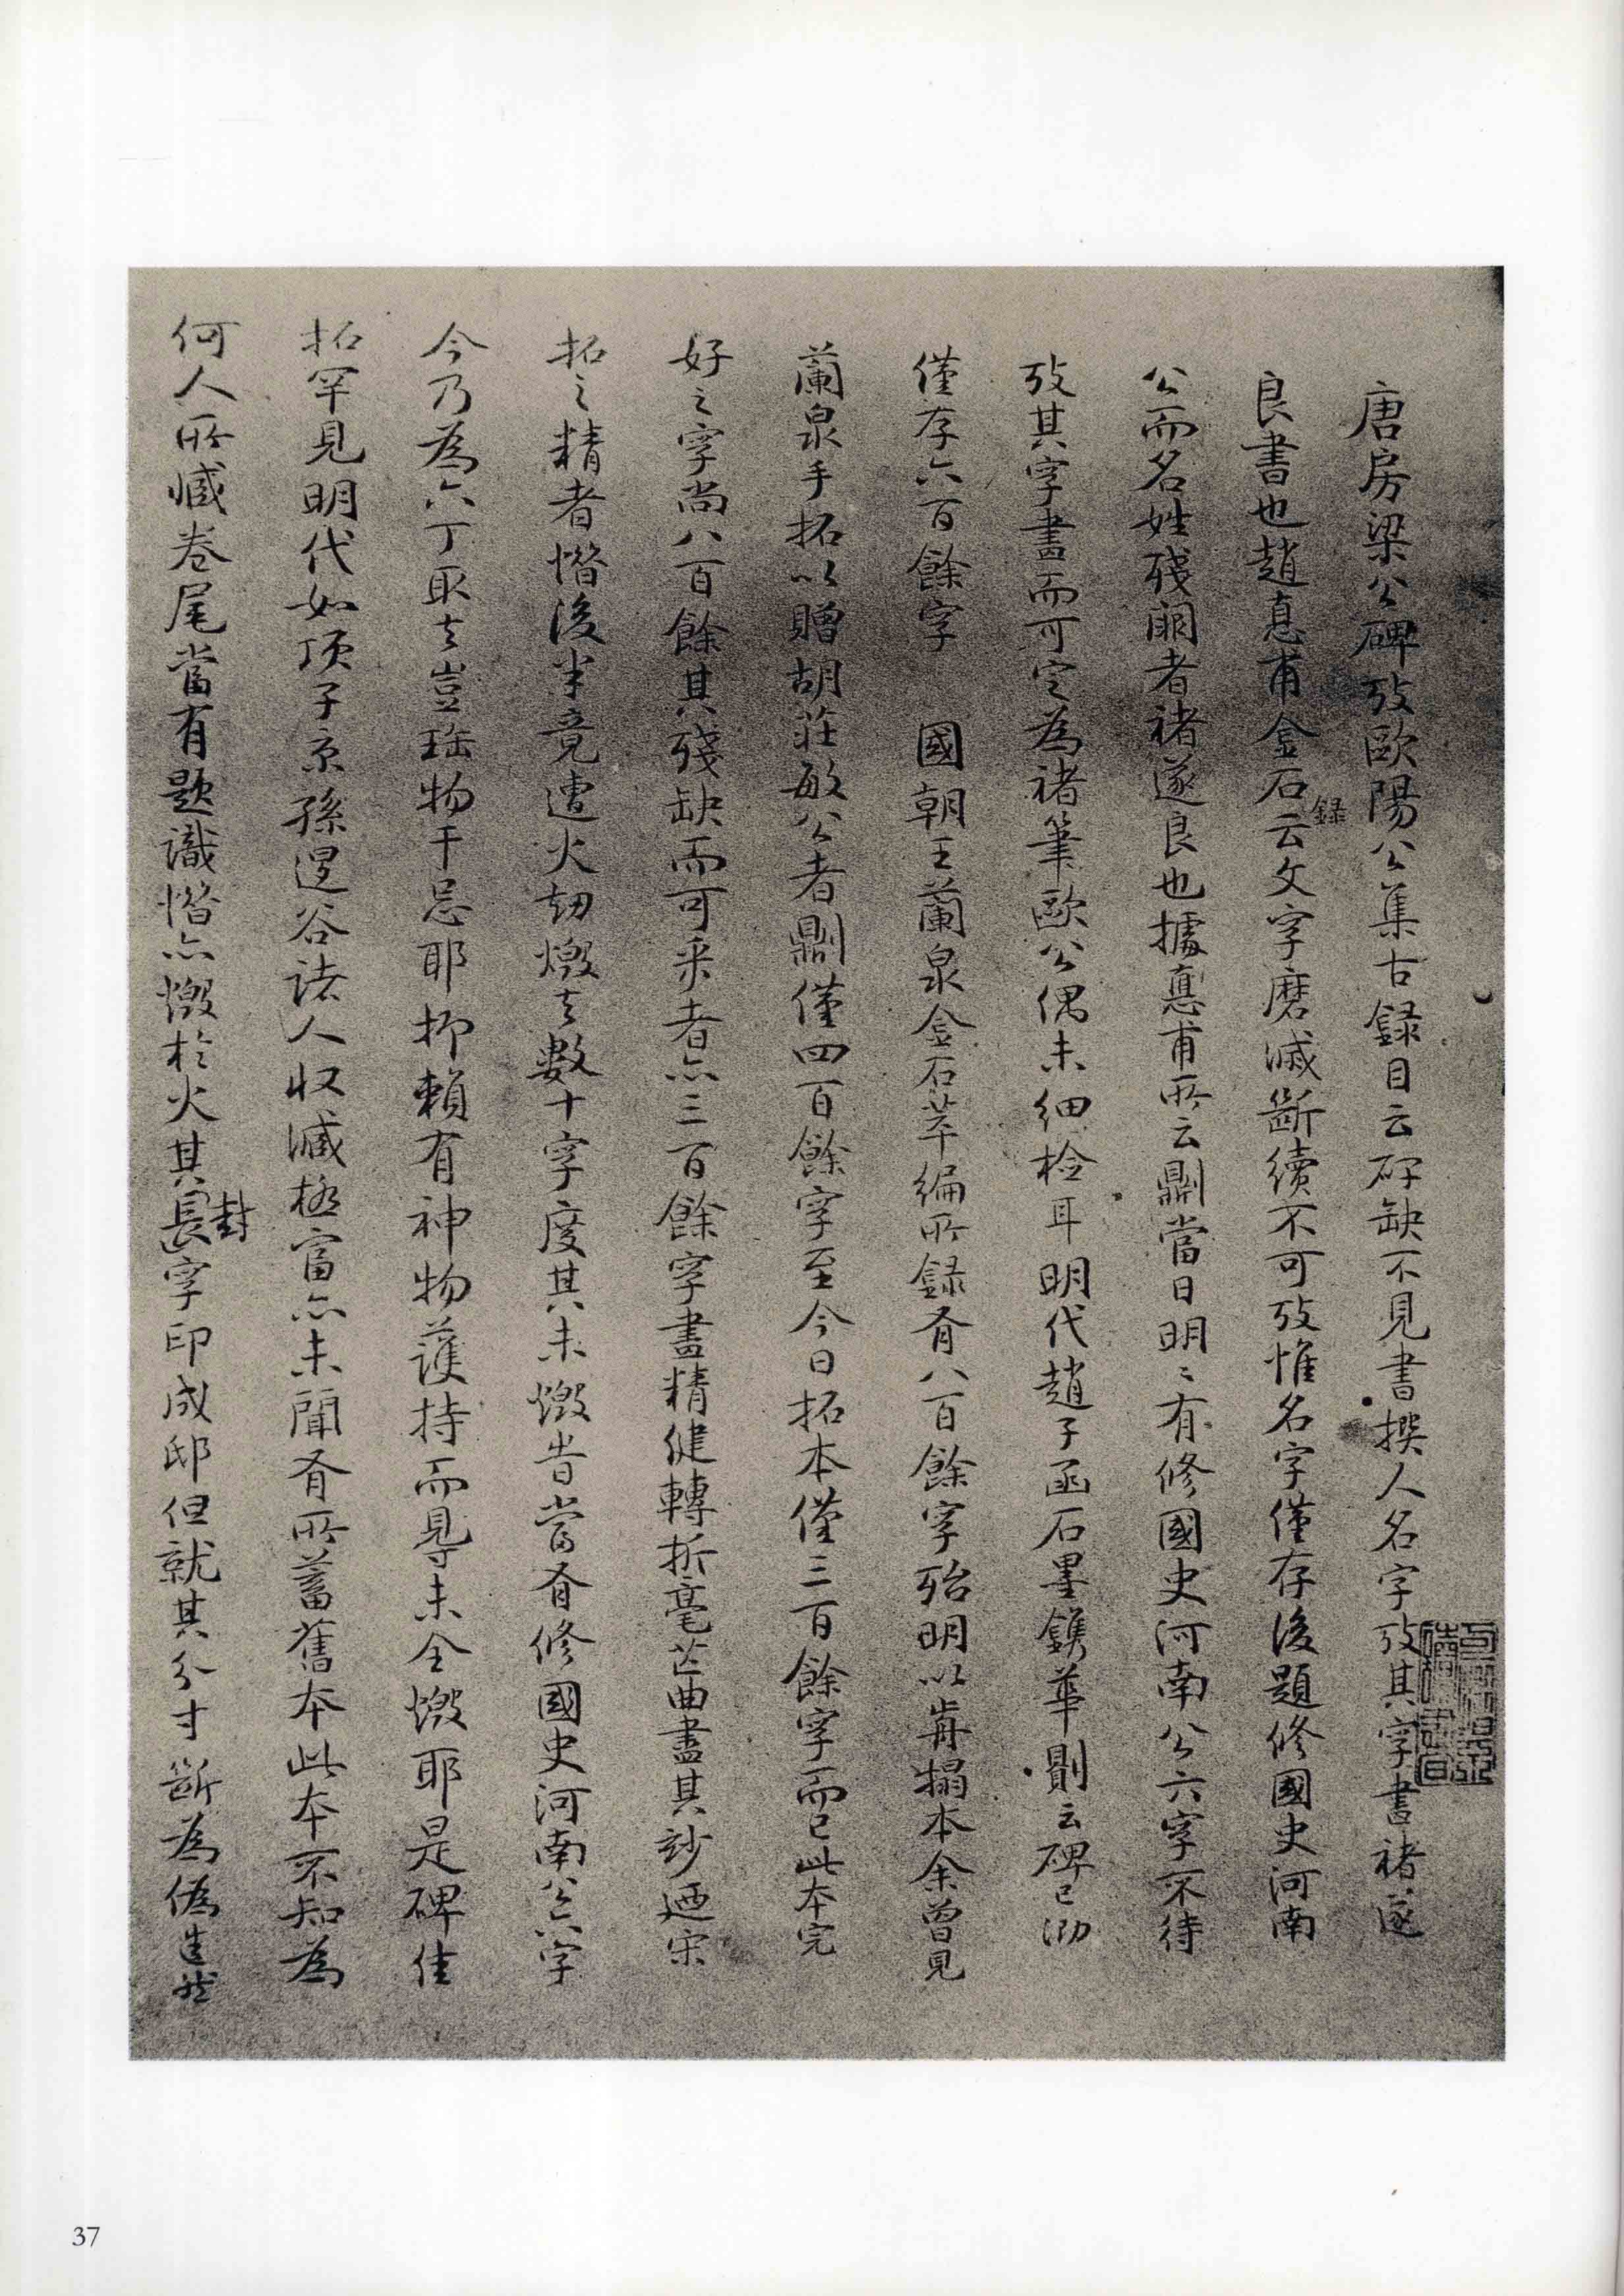 唐房梁公碑攷歐陽公集古録目云碑缺不見書撰人名字攷其字書褚遂
良書也趙悳甫金石録云文字磨滅斷續不可攷惟名字僅存後題修國史河南
公而名姓殘闕者褚遂良也據悳甫所云鼎當日明〻有修國史河南公六字不待
攷其字畫而可定為褚筆歐公偶未細檢耳明代趙子函石墨鐫華劓云碑已泐
僅存六百餘字 國朝王蘭泉金石萃編所録有八百餘字殆明以前搨本余曾見
蘭泉手拓以贈胡莊敏公者劓僅四百餘字至今日拓本僅三百餘字而已此本完
好之字尚八百餘其殘缺而可采者亦三百餘字畫精健轉折毫芒曲盡其玅迺宋
拓之精者惜後半竟遭火劫燬去數十字度其未燬昔當有修國史河南公六字
今乃為六丁取去豈珤物干忌耶抑賴有神物護持而㝵未全燬耶是碑佳
拓罕見明代如項子京孫退谷諸人收藏極富亦未聞有所蓄舊本此本不知為
何人所藏卷尾當有題識惜亦燬於火其長字印成邸但就其分寸斷為偽造然
封
37